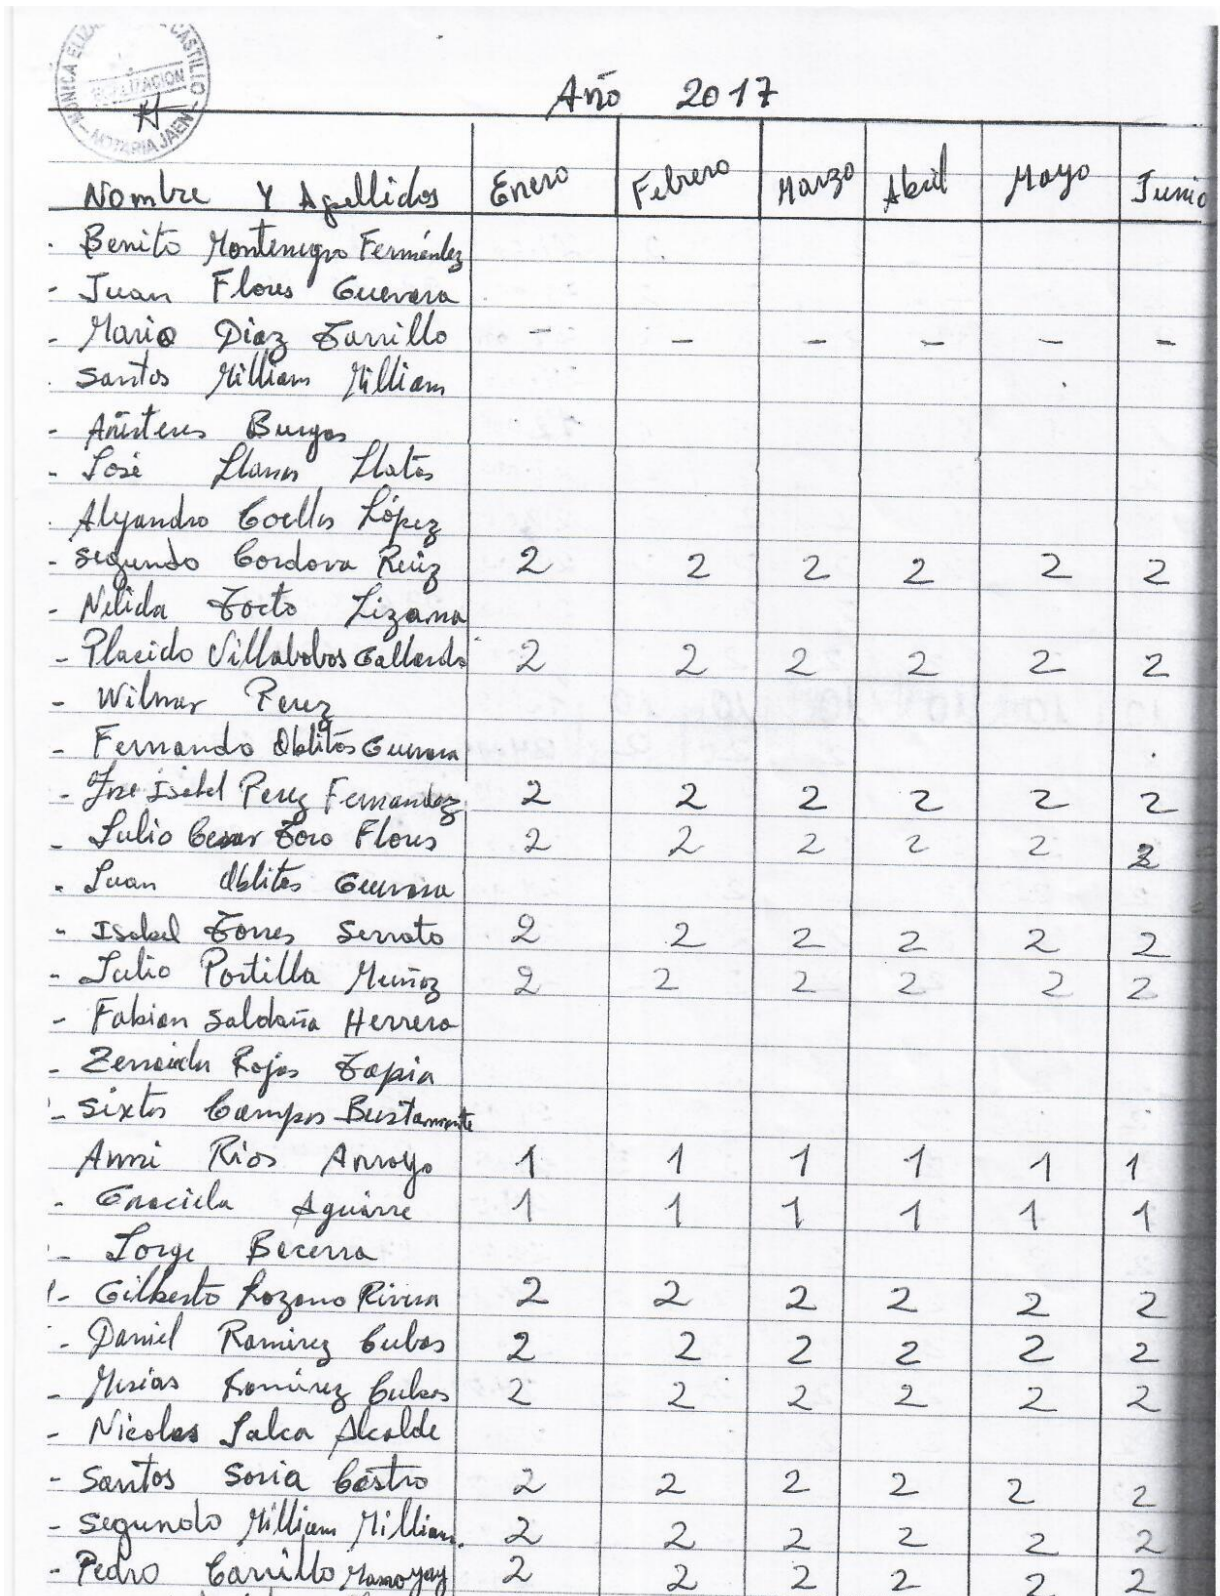 MONICA ELIZA CASTILLO
LEGALIZACION
NOTARIA JAEN
Año 2017
Nombre Y Apellidos Enero Febrero Marzo Abril Mayo Junio
- Benito Montenegro Fernández
- Juan Flores Guevara
- Mario Diaz Tarrillo - - - - - -
- Santos Milliam Milliam
- Burgos
- José Llanos Llatos
- Alejandro Coellos López
- Segundo Cordova Ruiz 2 2 2 2 2 2
- Nelida Tocto Lizana
- Placido Villalobos Gallardo 2 2 2 2 2 2
- Wilmer Perez
- Fernando Oblitos Guevara
- Jose Isabel Perez Fernandez 2 2 2 2 2 2
- Julio Cesar Toro Flores 2 2 2 2 2 2
- Juan Oblitos Guevara
- Isabel Torres Serrato 2 2 2 2 2 2
- Julio Portilla Muñoz 2 2 2 2 2 2
- Fabian Saldaña Herrera
- Zenaida Rojas Tapia
- Sixtos Campos Bustamante
Anni Rios Arroyo 1 1 1 1 1 1
- Graciela Aguirre 1 1 1 1 1 1
- Jorge Becerra
- Gilberto Lozano Rivera 2 2 2 2 2 2
- Daniel Ramirez Cubas 2 2 2 2 2 2
- Mesias Ramirez Cubas 2 2 2 2 2 2
- Nicolas Julca Alcalde
- Santos Soria Castro 2 2 2 2 2 2
- Segundo Milliam Milliam. 2 2 2 2 2 2
- Pedro Carrillo 2 2 2 2 2 2